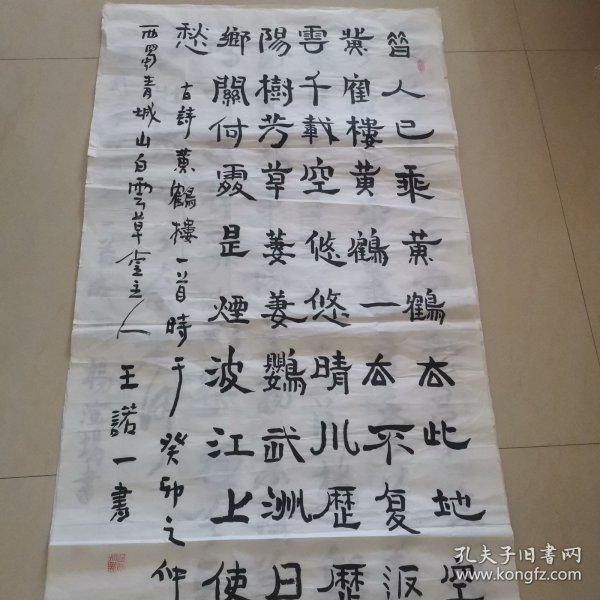 昔人已乘黄鶴去此地空
黄隺樓黄鶴一去不复返
雲千載空悠悠晴川歷歷
陽樹芳草萋萋鸚武洲日
鄉關何處是煙波江上使
愁
古詩黄鶴樓一首時于癸卯之仲
西蜀青城山白雲草堂主人
王諾一書
孔夫子旧书网
www.kongfz.com